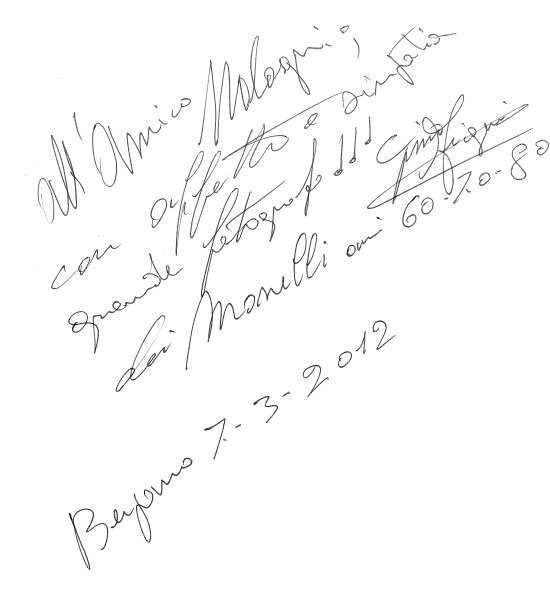 all'Amico Malagnini;
con affetto e simpatia
grande fotografo!!!
dei Monelli anni 60-70-80
Bergamo 7-3-2012